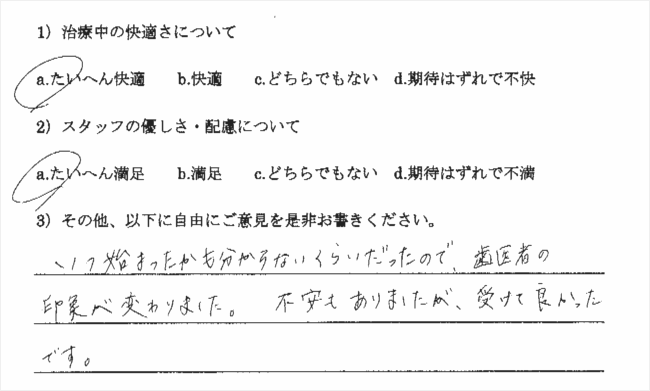 1）治療中の快適さについて
a.たいへん快適　b.快適　c.どちらでもない　d.期待はずれで不快
2）スタッフの優しさ・配慮について
a.たいへん満足　b.満足　c.どちらでもない　d.期待はずれで不満
3）その他、以下に自由にご意見を是非お書きください。
いつ始まったかも分からないくらいだったので、歯医者の
印象が変わりました。　不安もありましたが、受けて良かった
です。